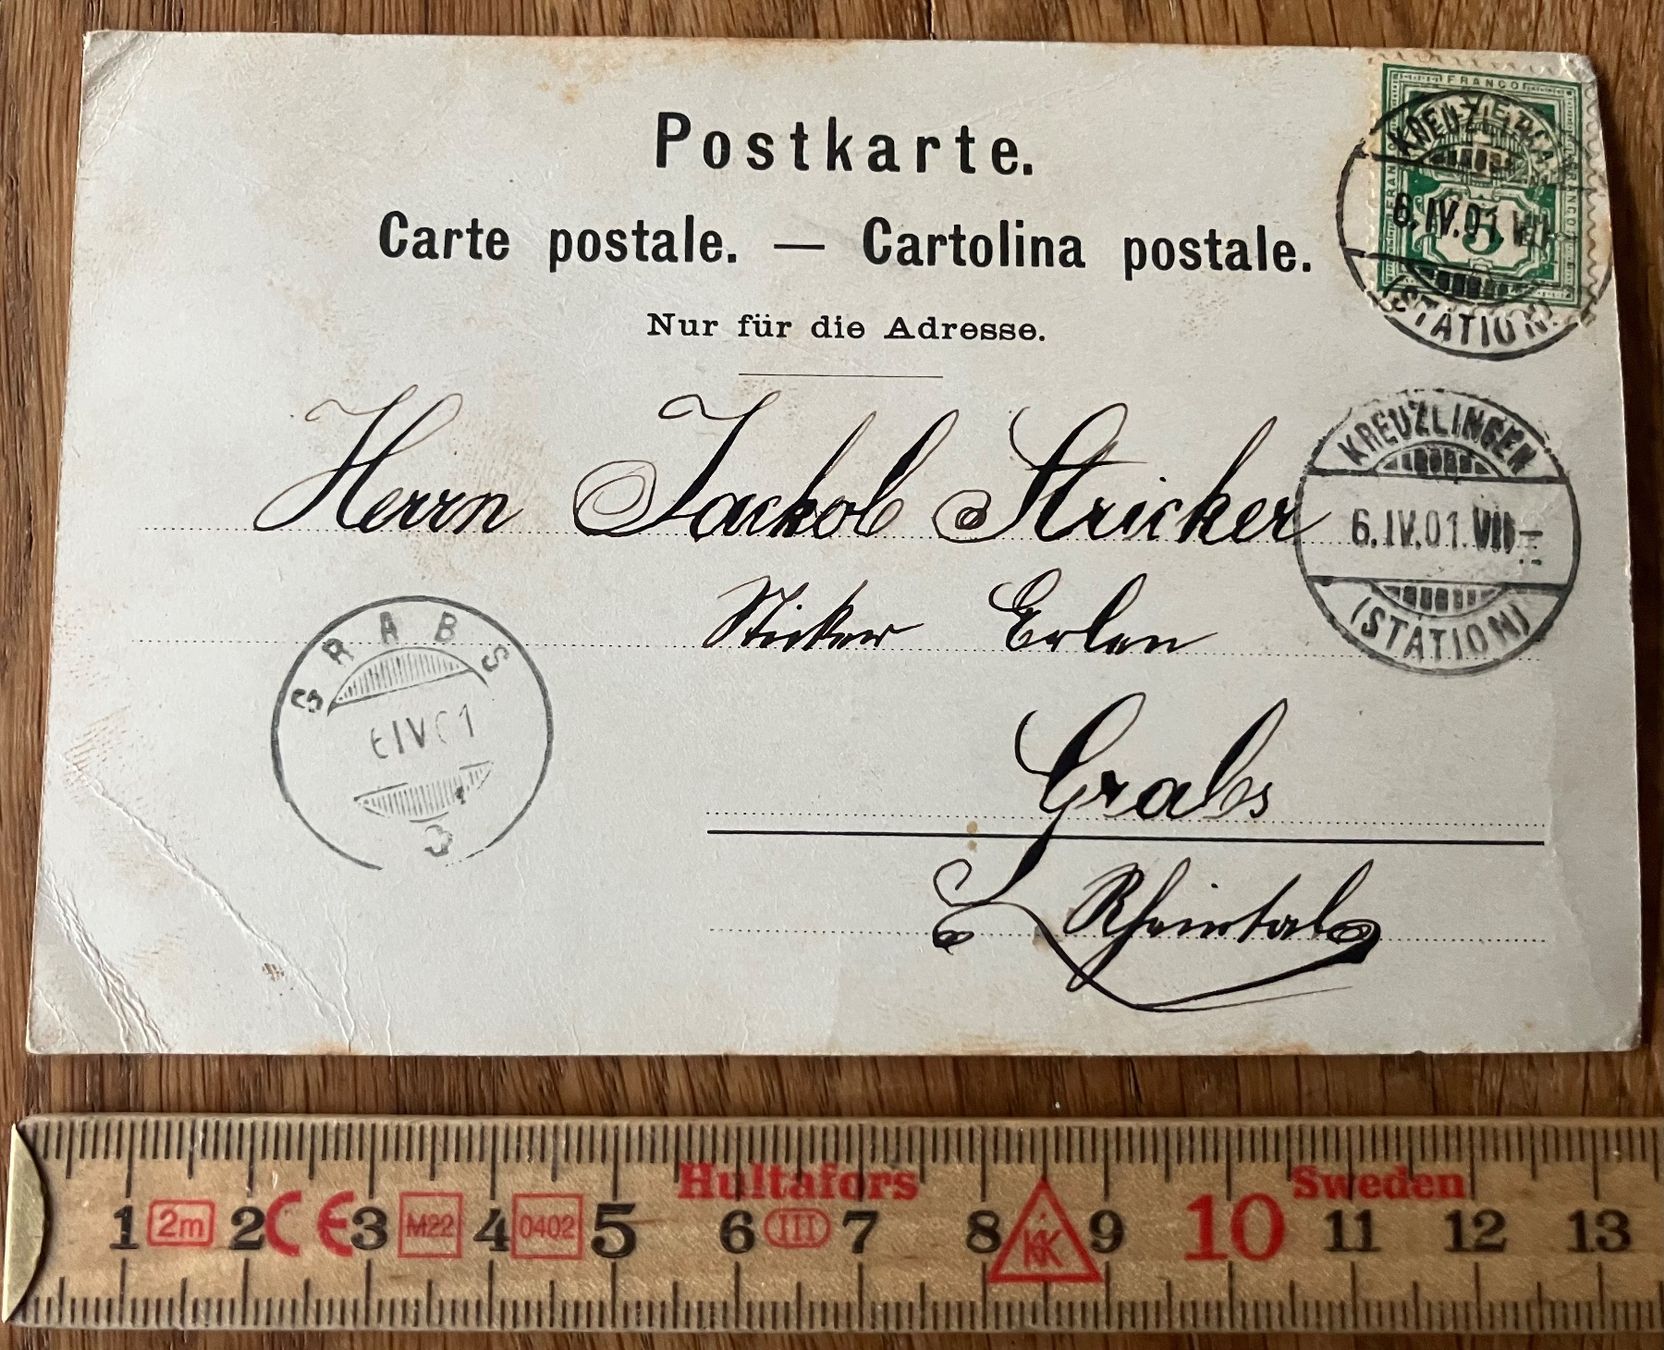 Postkarte.
Carte postale. — Cartolina postale.
Nur für die Adresse.
FRANCO
FRANCO
FRANCO
5
KREUZLINGEN
6.IV.01.VII-
(STATION)
Herrn Jackob Stricker
Sticker Erlen
Grabs
Rheintal
KREUZLINGEN
6.IV.01.VII-
(STATION)
GRABS
6 IV 01
3
Hultafors Sweden
1 2m 2 CE 3 M22 4 0402 5 6 III 7 8 KK 9 10 11 12 13